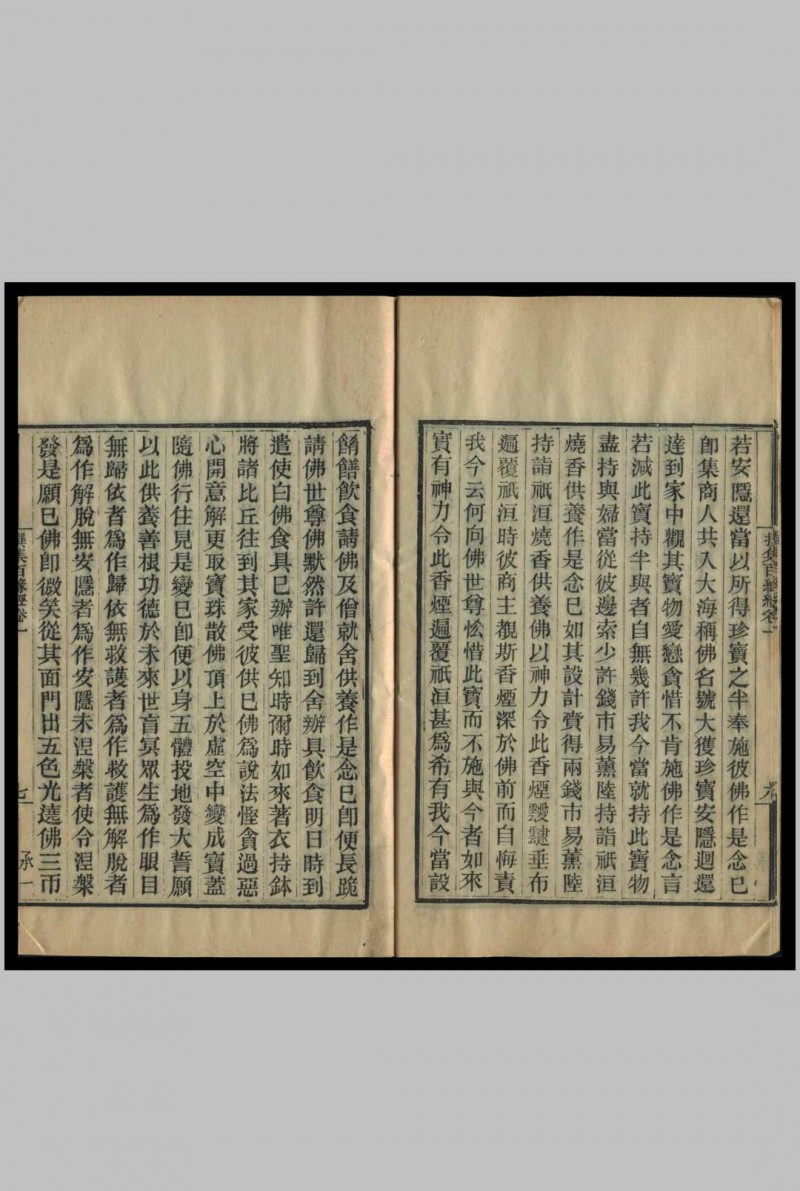 若安隱還當以所得珍寶之半奉施彼佛作是念已
卽集商人共入大海稱佛名號大獲珍寶安隱迴還
達到家中觀其寶物愛戀貪惜不肯施佛作是念言
若減此寶持半與者自無幾許我今當就持此寶物
盡持與婦當從彼邊索少許錢市易薰陸持詣祇洹
燒香供養作是念已如其設計賣得兩錢市易薰陸
持詣祇洹燒香供養佛以神力令此香煙靉靆垂布
遍覆祇洹時彼商主覩斯香煙深於佛前而自悔責
我今云何向佛世尊恡惜此寶而不施與今者如來
實有神力令此香煙遍覆祇洹甚爲希有我今當設
餚饍飲食請佛及僧就舍供養作是念已卽便長跪
請佛世尊佛默然許還歸到舍辦具飲食明日時到
遣使白佛食具已辦唯聖知時爾時如來著衣持鉢
將諸比丘往到其家受彼供已佛爲說法慳貪過惡
心開意解更取寶珠散佛頂上於虛空中變成寶蓋
隨佛行住見是變已卽便以身五體投地發大誓願
以此供養善根功德於未來世盲冥眾生爲作眼目
無歸依者爲作歸依無救護者爲作救護無解脫者
爲作解脫無安隱者爲作安隱未涅槃者使令涅槃
發是願已佛卽微笑從其面門出五色光遶佛三帀
撰集百緣經卷一
七
承一